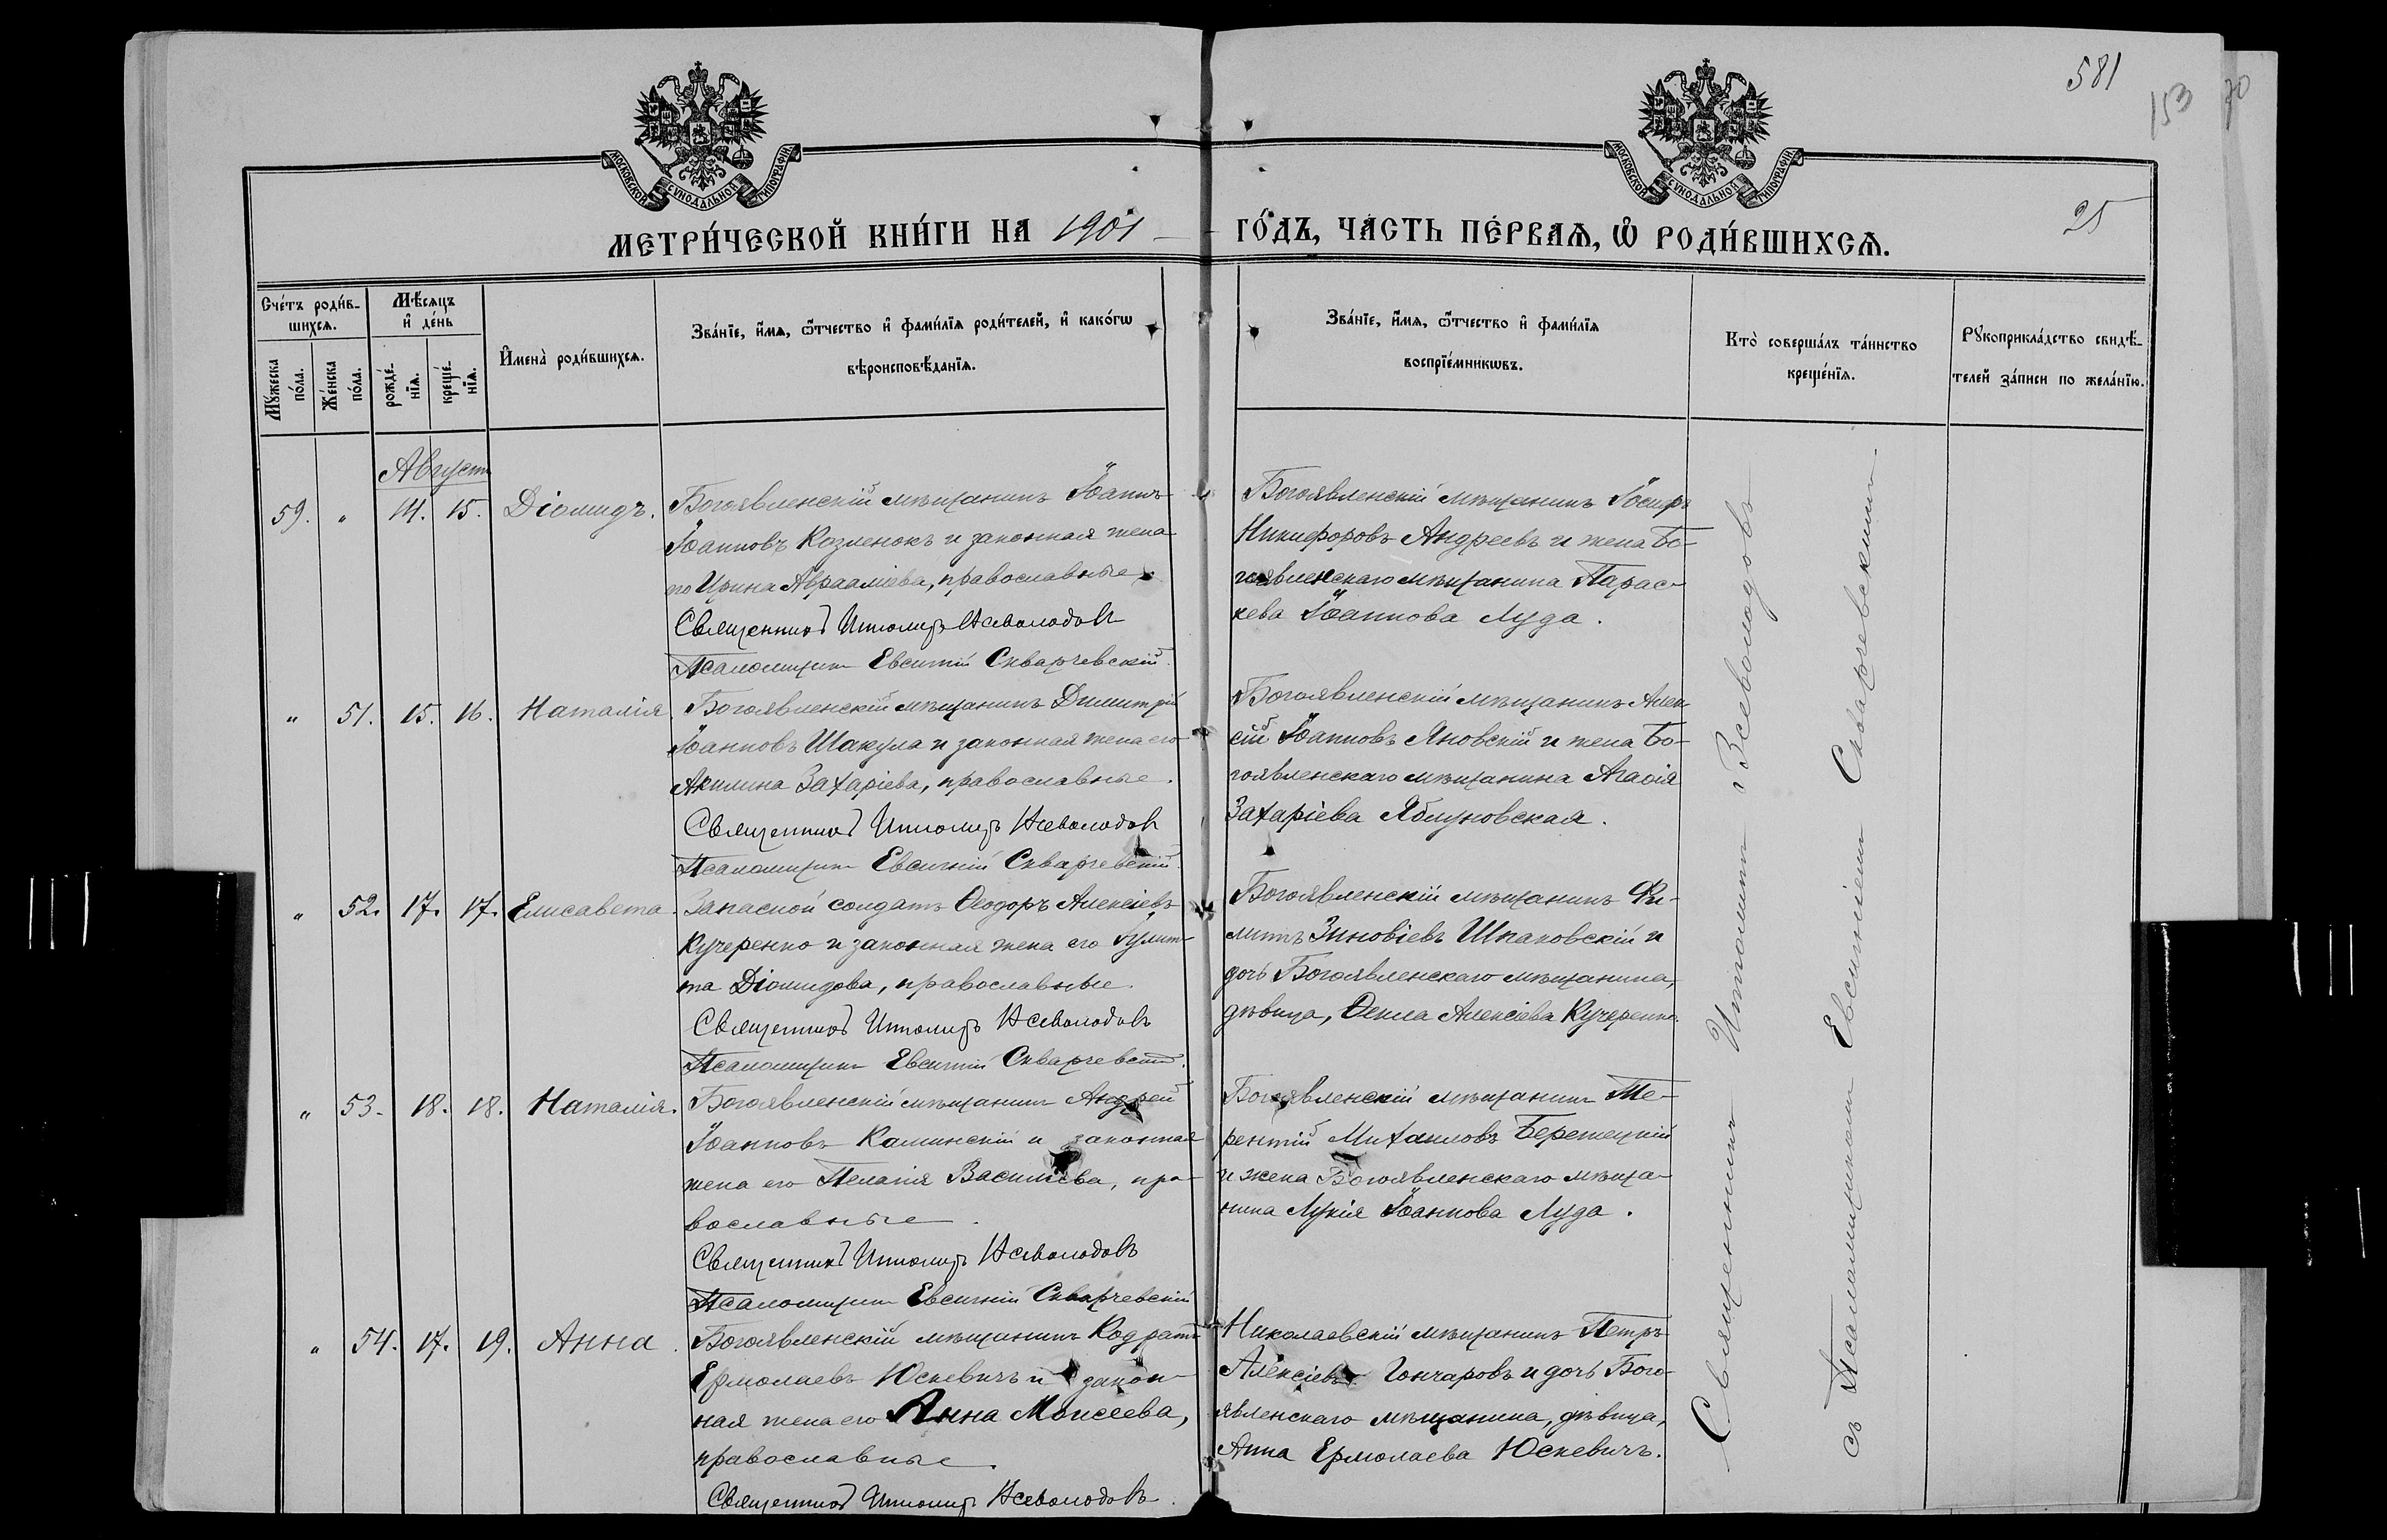 581
153
70
25
МОСКОВСКОЙ СѴНОДАЛЬНОЙ ТИПОГРАФІИ
МОСКОВСКОЙ СѴНОДАЛЬНОЙ ТИПОГРАФІИ
МЕТРИ́ЧЕСКОЙ КНИ́ГИ НА 1901 ГО́ДЪ, ЧА́СТЬ ПЕ́РВАѦ, Ѡ҆ РОДИ́ВШИХСѦ.
Сче́тъ роди́в-
шихсѧ.
Мꙋ́жеска
по́ла.
Же́нска
по́ла.
Мѣ́сѧцъ
и҆ де́нь
рожде́-
нїѧ.
креще́-
нїѧ.
И҆мена̀ роди́вшихсѧ.
Зва́нїе, и҆́мѧ, ѻ҆́тчество и҆ фами́лїѧ роди́телей, и҆ како́гѡ
вѣроисповѣ́данїѧ.
Зва́нїе, и҆́мѧ, ѻ҆́тчество и҆ фами́лїѧ
воспрїе́мникѡвъ.
Кто̀ соверша́лъ та́инство
креще́нїѧ.
Рꙋкоприкла́дство свидѣ́-
телей за́писи по жела́нїю.
Августъ
59. " 14. 15. Діомидъ.
Богоявленскій мѣщанинъ Іоаннъ
Іоанновъ Козленокъ и законная жена
го Ирина Авраамiева, православные.
Священникъ Ипполитъ Всеволодовъ
Псаломщикъ Евсигній Скварчевскій.
Богоявленскій мѣщанинъ Іосифъ
Никифоровъ Андреевъ и жена Бо-
гоявленскаго мѣщанина Парас-
кева Іоаннова Луда.
" 51. 15. 16. Наталія
Богоявленскій мѣщанинъ Димитрій
Іоанновъ Шакула и законная жена его
Акилина Захаріева, православные.
Священникъ Ипполитъ Всеволодовъ
Псаломщикъ Евсигній Скварчевскій.
Богоявленскій мѣщанинъ Алек
сій Іоанновъ Яновскій и жена Бо-
гоявленскаго мѣщанина Агаѳія
Захаріева Яблуновская.
" 52. 17. 17. Елисавета.
Запасной солдатъ Ѳеодоръ Алексіевъ
Кучеренко и законная жена его Іулит-
та Діомидова, православные.
Священникъ Ипполитъ Всеволодовъ
Псаломщикъ Евсигній Скварчевскій.
Богоявленскій мѣщанинъ Фи-
липъ Зиновіевъ Шпаковскій и
дочь Богоявленскаго мѣщанина,
дѣвица, Ѳекла Алексіева Кучеренко.
" 53. 18. 18. Наталія.
Богоявленскій мѣщанинъ Андрей
Іоанновъ Каминскій и законная
жена его Пелагія Василіева, пра-
вославные.
Священникъ Ипполитъ Всеволодовъ
Псаломщикъ Евсигній Скварчевскій
Богоявленскій мѣщанинъ Те-
рентій Михаиловъ Березецкій
и жена Богоявленскаго мѣща-
нина Лукія Іоаннова Луда.
" 54. 17. 19. Анна.
Богоявленскій мѣщанинъ Кодратъ
Ермолаевъ Юскевичъ и закон-
ная жена его Анна Моисеева,
православные.
Священникъ Ипполитъ Всеволодовъ.
Николаевскій мѣщанинъ Петръ
Алексіевъ Гончаровъ и дочь Бого-
явленскаго мѣщанина, дѣвица,
Анна Ермолаева Юскевичъ.
Священникъ Ипполитъ Всеволодовъ
съ Псаломщикомъ Евсигніемъ Скварчевскимъ